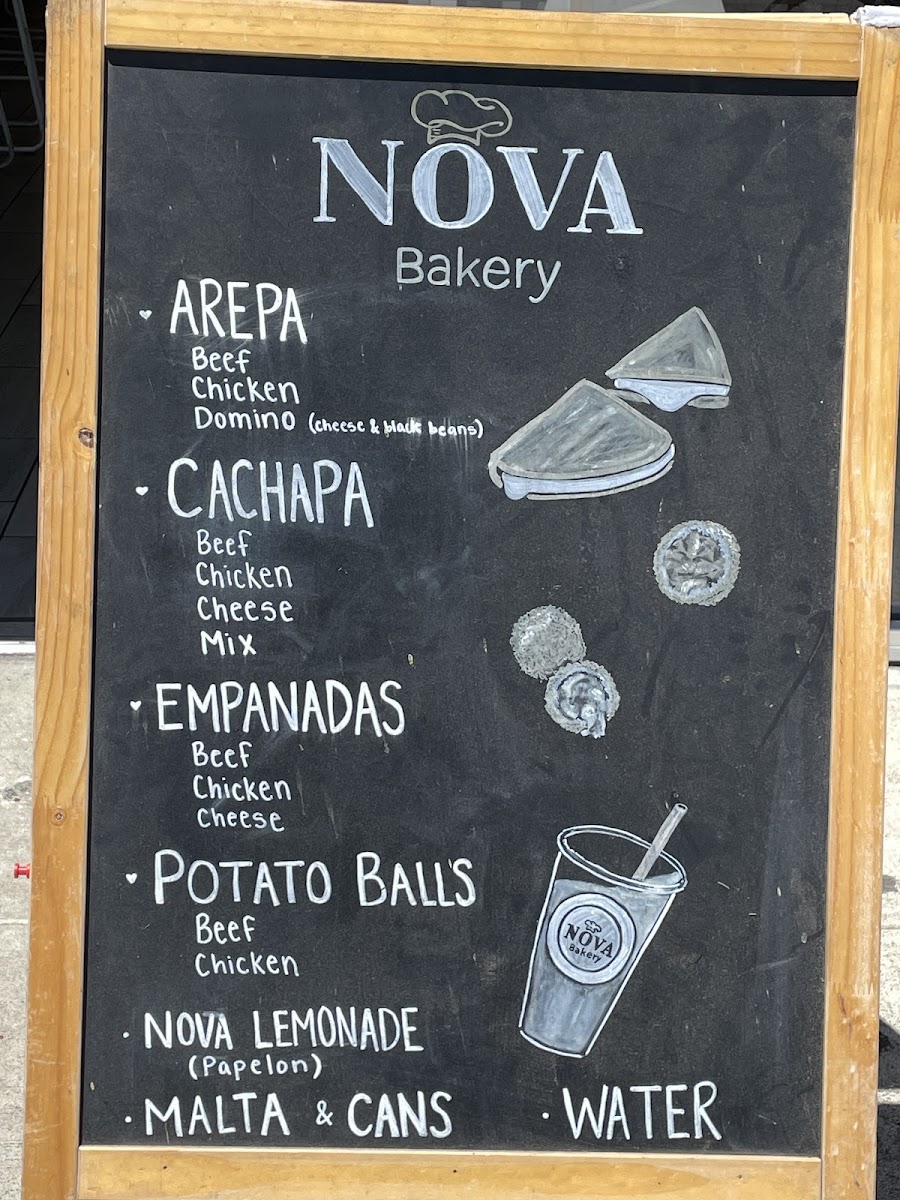 NOVA
Bakery
AREPA
Beef
Chicken
Domino (cheese & black beans)
CACHAPA
Beef
Chicken
Cheese
Mix
EMPANADAS
Beef
Chicken
Cheese
POTATO BALL'S
Beef
Chicken
NOVA
Bakery
· NOVA LEMONADE
(Papelon)
· MALTA & CANS
· WATER